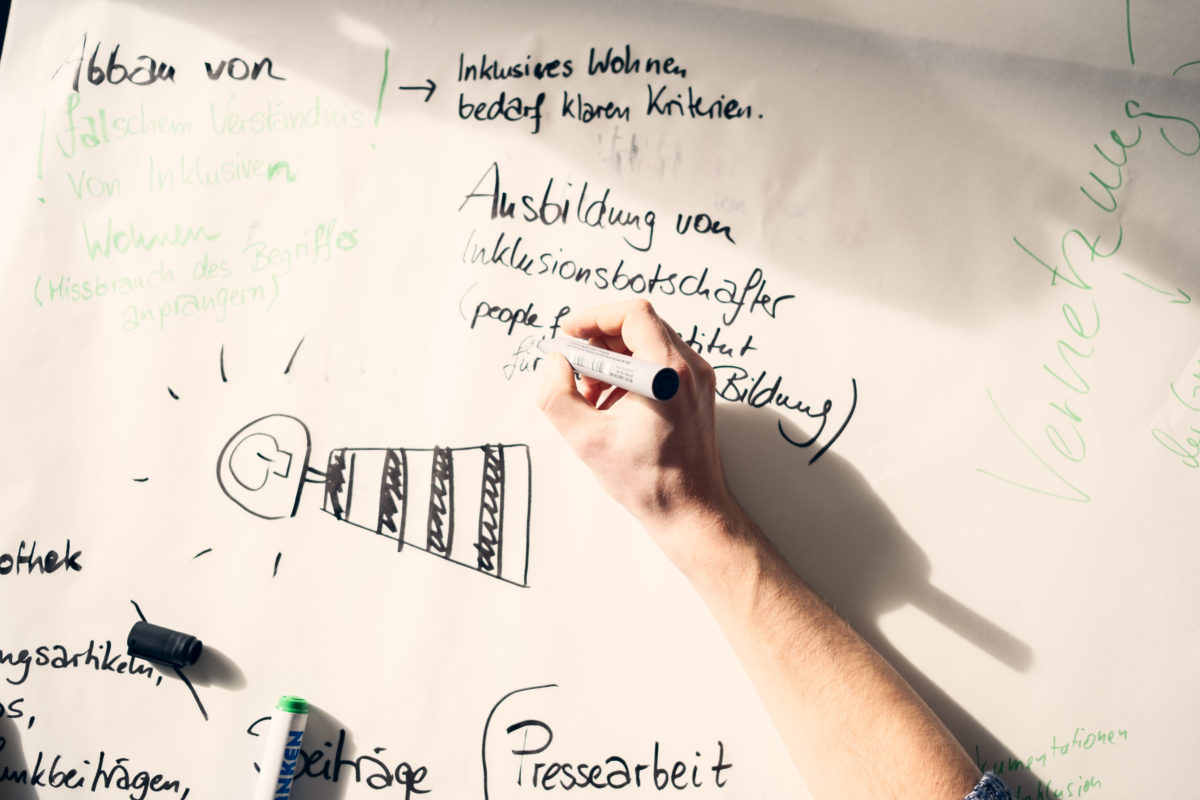 Abbau von
falschem Verständnis
von Inklusiven
Wohnen
(Missbrauch des Begriffes
anprangern)
→ Inklusives Wohnen
bedarf klaren Kriterien.
Ausbildung von
Inklusionsbotschafter
(people f
titut
für
Bildung)
Vernetzung
othek
ngsartikeln,
os,
unkbeiträgen,
beiträge
Pressearbeit
kumentationen
Inklusion
ANKEN